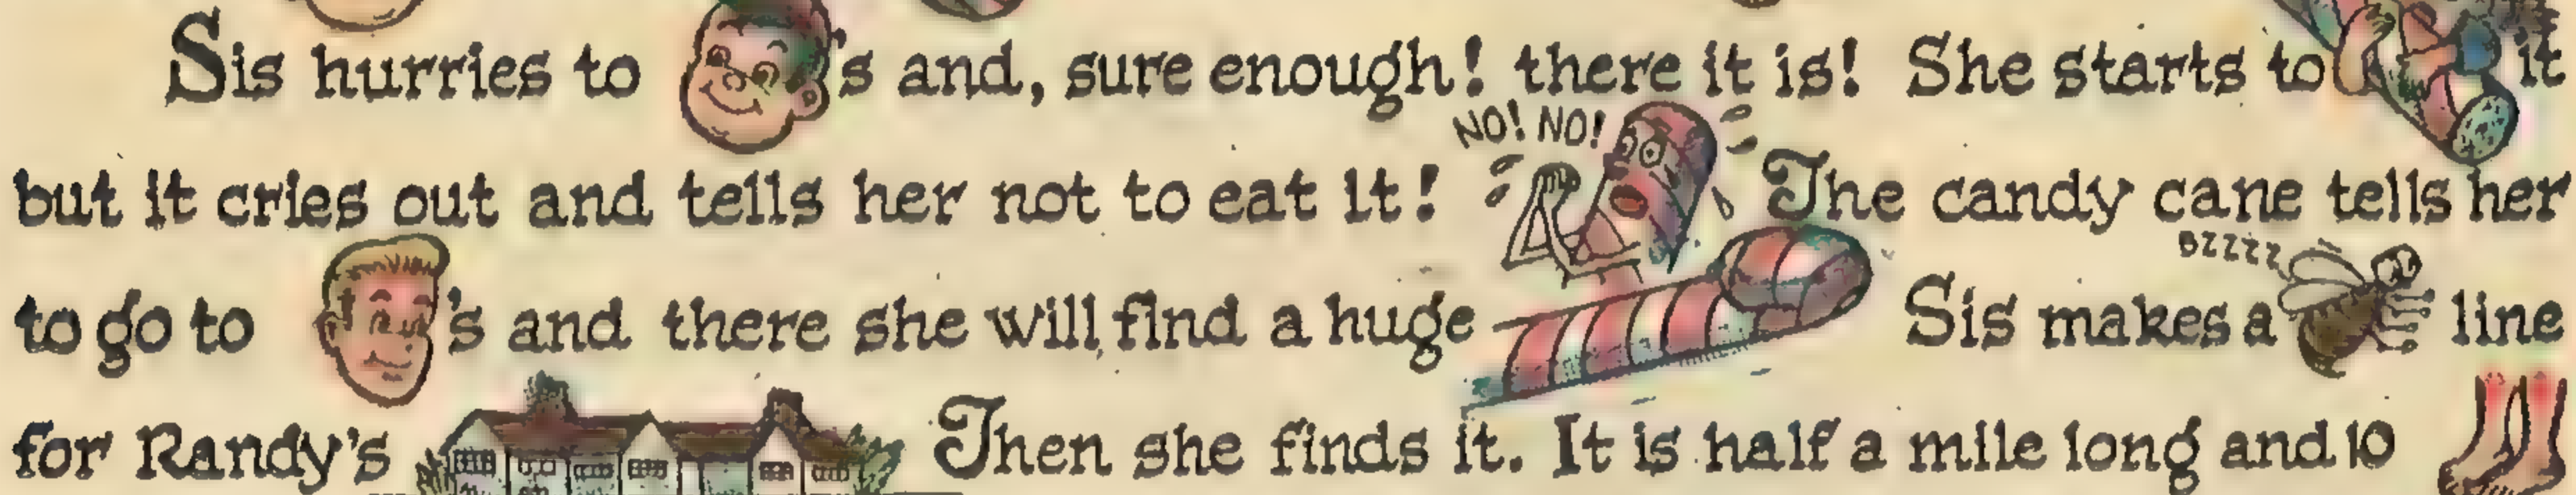 Sis hurries to 's and, sure enough! there it is! She starts to it
NO! NO!
but it cries out and tells her not to eat it! The candy cane tells her
BZZZZ
to go to 's and there she will find a huge Sis makes a line
for Randy's Then she finds it. It is half a mile long and 10